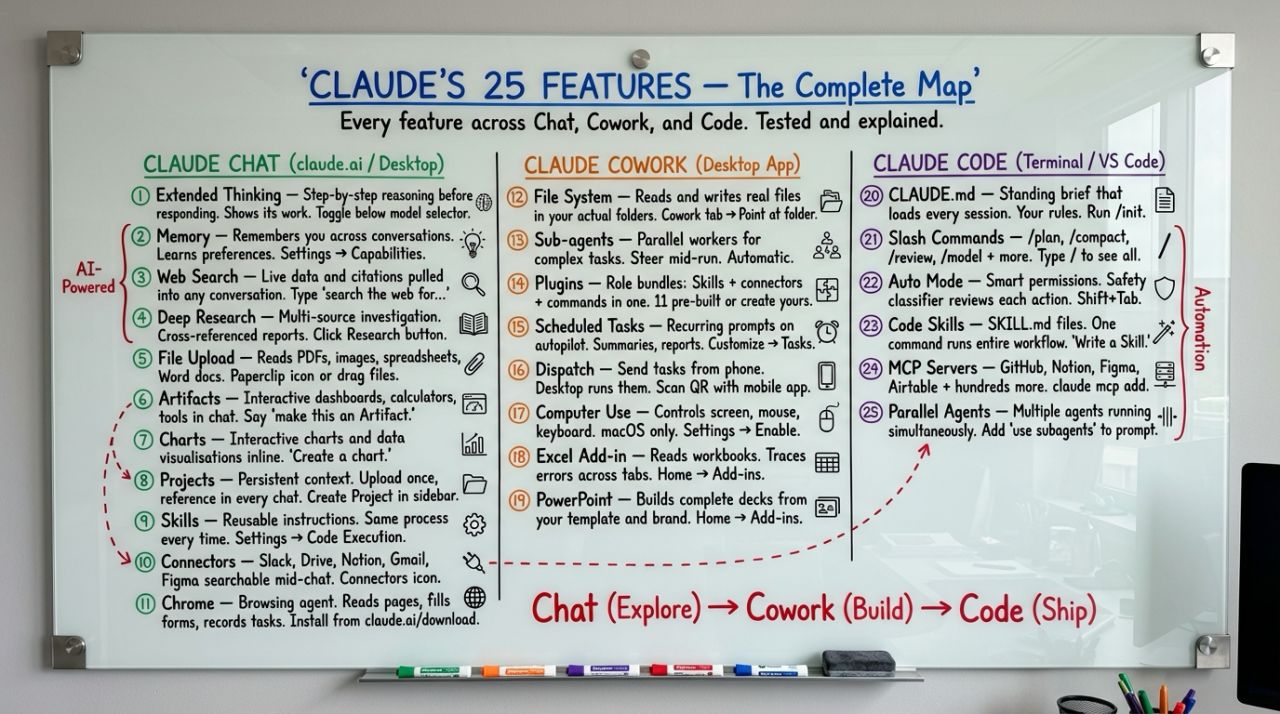 ‘CLAUDE’S 25 FEATURES — The Complete Map’
Every feature across Chat, Cowork, and Code. Tested and explained.
CLAUDE CHAT (claude.ai / Desktop)
① Extended Thinking — Step-by-step reasoning before
responding. Shows its work. Toggle below model selector.
AI-
Powered
② Memory — Remembers you across conversations.
Learns preferences. Settings → Capabilities.
③ Web Search — Live data and citations pulled
into any conversation. Type ‘search the web for...’
④ Deep Research — Multi-source investigation.
Cross-referenced reports. Click Research button.
⑤ File Upload — Reads PDFs, images, spreadsheets,
Word docs. Paperclip icon or drag files.
⑥ Artifacts — Interactive dashboards, calculators,
tools in chat. Say ‘make this an Artifact.’
⑦ Charts — Interactive charts and data
visualisations inline. ‘Create a chart.’
⑧ Projects — Persistent context. Upload once,
reference in every chat. Create Project in sidebar.
⑨ Skills — Reusable instructions. Same process
every time. Settings → Code Execution.
⑩ Connectors — Slack, Drive, Notion, Gmail,
Figma searchable mid-chat. Connectors icon.
⑪ Chrome — Browsing agent. Reads pages, fills
forms, records tasks. Install from claude.ai/download.
CLAUDE COWORK (Desktop App)
⑫ File System — Reads and writes real files
in your actual folders. Cowork tab → Point at folder.
⑬ Sub-agents — Parallel workers for
complex tasks. Steer mid-run. Automatic.
⑭ Plugins — Role bundles: Skills + connectors
+ commands in one. 11 pre-built or create yours.
⑮ Scheduled Tasks — Recurring prompts on
autopilot. Summaries, reports. Customize → Tasks.
⑯ Dispatch — Send tasks from phone.
Desktop runs them. Scan QR with mobile app.
⑰ Computer Use — Controls screen, mouse,
keyboard. macOS only. Settings → Enable.
⑱ Excel Add-in — Reads workbooks. Traces
errors across tabs. Home → Add-ins.
⑲ PowerPoint — Builds complete decks from
your template and brand. Home → Add-ins.
CLAUDE CODE (Terminal / VS Code)
⑳ CLAUDE.md — Standing brief that
loads every session. Your rules. Run /init.
㉑ Slash Commands — /plan, /compact,
/review, /model + more. Type / to see all.
㉒ Auto Mode — Smart permissions. Safety
classifier reviews each action. Shift+Tab.
㉓ Code Skills — SKILL.md files. One
command runs entire workflow. ‘Write a Skill.’
㉔ MCP Servers — GitHub, Notion, Figma,
Airtable + hundreds more. claude mcp add.
㉕ Parallel Agents — Multiple agents running
simultaneously. Add ‘use subagents’ to prompt.
Automation
Chat (Explore) → Cowork (Build) → Code (Ship)